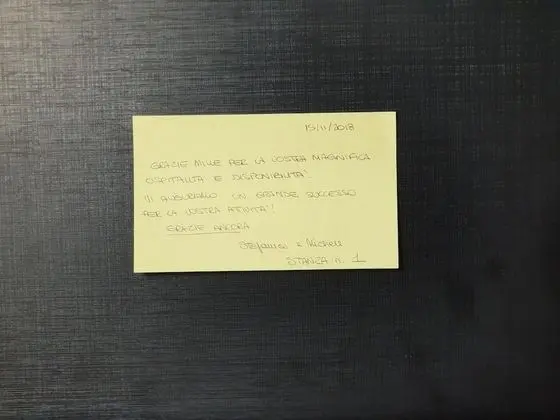 15/11/2018
GRAZIE MILLE PER LA VOSTRA MAGNIFICA
OSPITALITÀ E DISPONIBILITÀ.
VI AUGURIAMO UN GRANDE SUCCESSO
PER LA VOSTRA ATTIVITÀ!
GRAZIE ANCORA
e Michele
STANZA n. 1